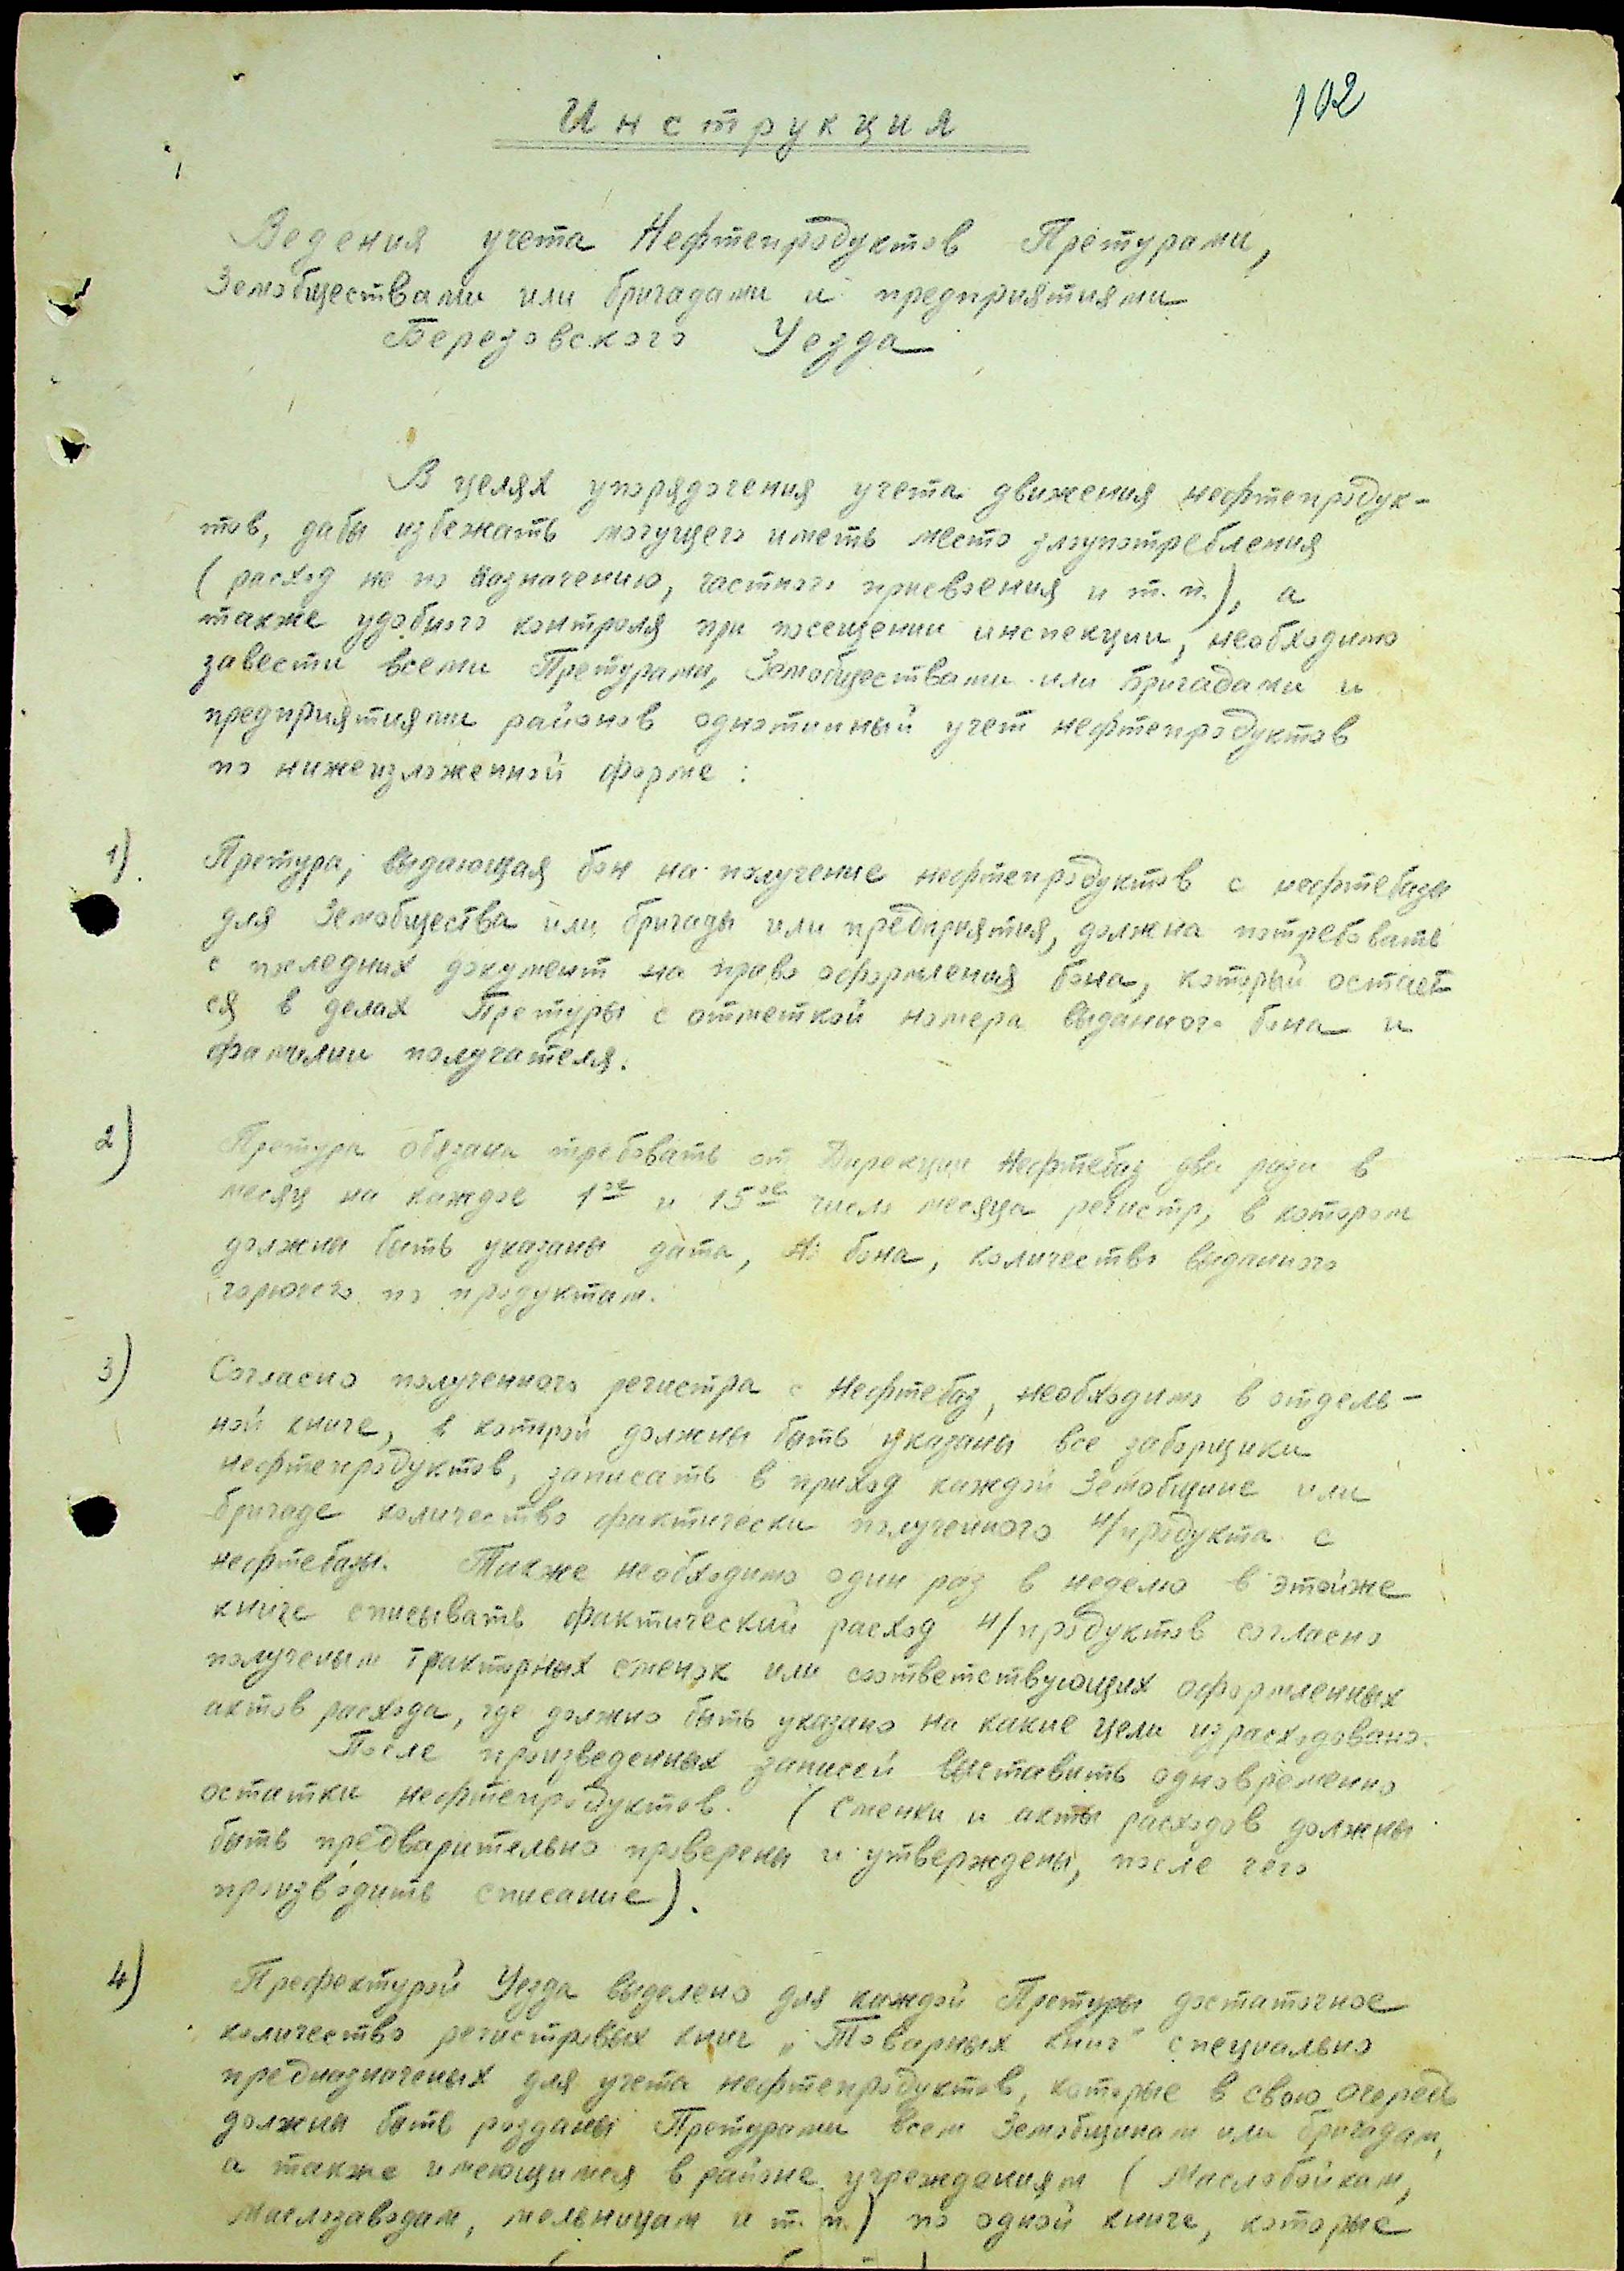 102
Инструкция
Ведения учета Нефтепродуктов Претурами,
Земобществами или бригадами и предприятиями
Березовского Уезда
В целях упорядочения учета движения нефтепродук-
тов, дабы избежать могущего иметь место злоупотребления
( расход не по назначению, частного присвоения и т. п.), а
также удобного контроля при посещении инспекции, необходимо
завести всеми Претурами, Земобществами или бригадами и
предприятиями районов однотипный учет нефтепродуктов
по нижеизложенной форме :
1) Претура, выдающая бон на получение нефтепродуктов с нефтебазы
для Земобщества или бригады или предприятия, должна потребовать
с последних документ на право оформления бона, который остает
ся в делах Претуры с отметкой номера выданного бона и
фамилии получателя.
2) Претура обязана требовать от Дирекции Нефтебаз два раза в
месяц на каждое 1ое и 15ое число месяца регистр, в котором
должны быть указаны дата, № бона, количество выданного
горючего по продуктам.
3) Согласно полученного регистра с Нефтебаз, необходимо в отдель-
ной книге, в которой должны быть указаны все заборщики
нефтепродуктов, записать в приход каждой Земобщине или
бригаде количество фактически полученного н/продукта с
нефтебазы. Также необходимо один раз в неделю в этойже
книге списывать фактический расход н/продуктов согласно
полученым тракторных сменок или соответствующих оформленных
актов расхода, где должно быть указано на какие цели израсходовано.
После произведенных записей выставить одновременно
остатки нефтепродуктов. ( Сменки и акты расходов должны
быть предварительно проверены и утверждены, после чего
производить списание).
4) Префектурой Уезда выделено для каждой Претуры достаточное
количество регистровых книг „Товарных книг" специально
предназначеных для учета нефтепродуктов, которые в свою очередь
должны быть розданы Претурами всем Земобщинам или бригадам,
а также имеющимся в районе учреждениям ( Маслобойкам,
Маслозаводам, мельницам и т. п.) по одной книге, которые